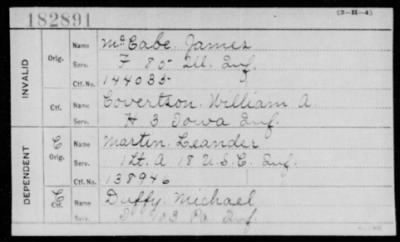 182891
(3-II-4)
INVALID
Orig.
Name McCabe, James
Serv. F 80 Ill. Inf.
Ctf. No. 144035
Ctf.
Name Covertson, William A.
Serv. H 3 Iowa Inf.
DEPENDENT
C Orig.
Name Martin, Leander
Serv. 1 Lt. A 18 U.S.C. Inf.
Ctf. No. 138946
C Ctf.
Name Duffy, Michael
Serv. 103 Pa. Inf.